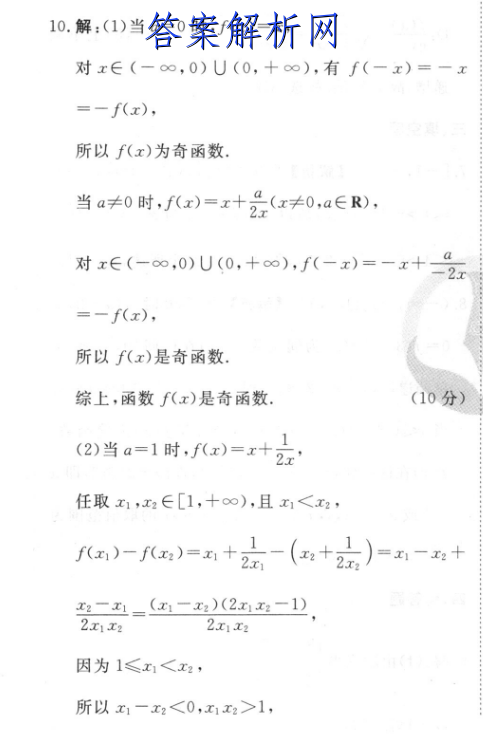 答案解析网
10.解:(1)当
对 x∈(-∞,0)∪(0,+∞),有 f(-x)=-x
=-f(x),
所以 f(x)为奇函数.
当 a≠0 时,f(x)=x+a/2x(x≠0,a∈R),
对 x∈(-∞,0)∪(0,+∞),f(-x)=-x+a/-2x
=-f(x),
所以 f(x)是奇函数.
综上,函数 f(x)是奇函数. (10 分)
(2)当 a=1 时,f(x)=x+1/2x,
任取 x₁,x₂∈[1,+∞),且 x₁<x₂,
f(x₁)-f(x₂)=x₁+1/2x₁-(x₂+1/2x₂)=x₁-x₂+
x₂-x₁/2x₁x₂=(x₁-x₂)(2x₁x₂-1)/2x₁x₂,
因为 1≤x₁<x₂,
所以 x₁-x₂<0,x₁x₂>1,